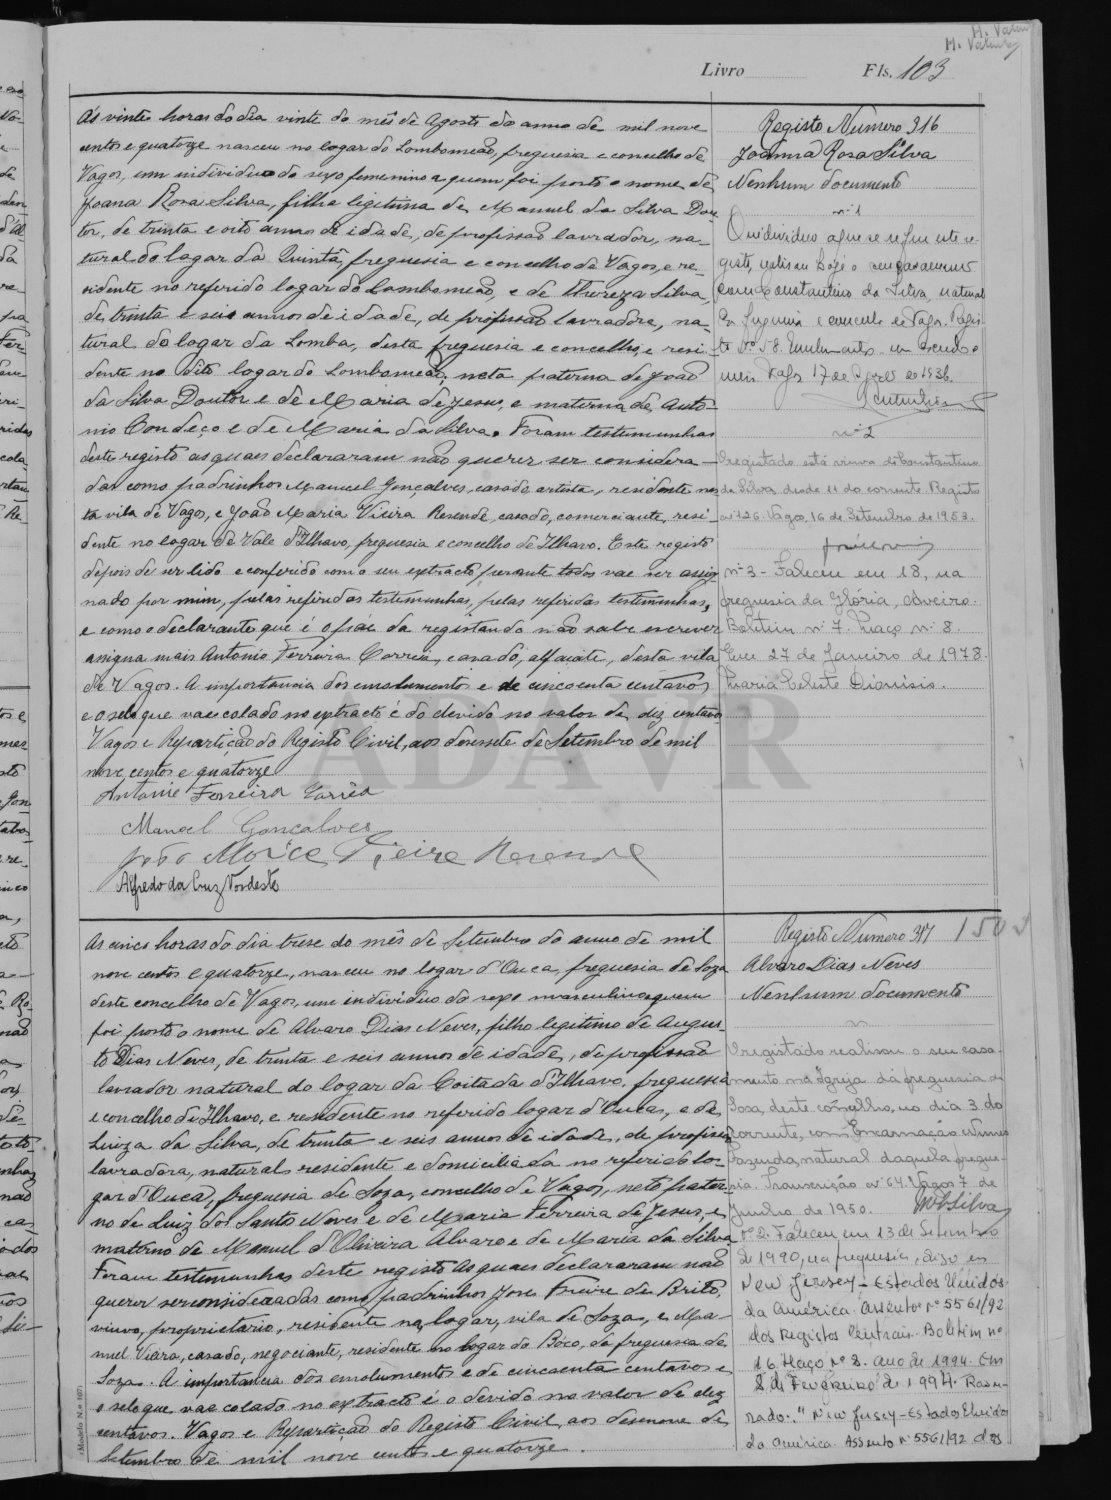 M. Valente
Livro Fls. 103
Ás vinte horas do dia vinte do mês de Agosto do anno de mil nove
centos e quatorze nasceu no logar do Lombomeão, freguesia e concelho de
Vagos, um individuo do sexo feminino a quem foi posto o nome de
Joana Rosa Silva, filha legitima de Manuel da Silva Dou
tor, de trinta e oito annos de idade, de profissão lavrador, na-
tural do logar da Quintã, freguesia e concelho de Vagos, e re-
sidente no referido logar do Lombomeão, e de Thereza Silva,
de trinta e seis annos de idade, de profissão lavradora, na-
tural do logar da Lomba, desta freguesia e concelho, e resi-
dente no dito logar do Lombomeão, neta paterna de João
da Silva Doutor e de Maria de Jesus, e materna de Anto-
nio Condeço e de Maria da Silva. Foram testemunhas
deste registo as quaes declararam não querer ser considera-
das como padrinhos Manuel Gonçalves, casado, artista, residente nes
ta vila de Vagos, e João Maria Vieira Resende, casado, comerciante, resi-
dente no logar de Vale d'Ilhavo, freguesia e concelho de Ilhavo. Este registo
depois de ser lido e conferido com o seu extracto perante todos vae ser assig
nado por mim, pelas referidas testemunhas, pelas referidas testemunhas,
e como o declarante que é o pae da registanda não sabe escrever
assigna mais Antonio Ferreira Correia, casado, alfaiate, desta vila
de Vagos. A importancia dos emolumentos e de cincoenta centavos
e o selo que vae colado no extracto é do devido no valor de dez centavos
Vagos e Repartição do Registo Civil, aos desessete de Setembro de mil
nove centos e quatorze
Antonio Ferreira Corrêa
Manoel Gonçalves
João Maria Vieira Resende
Alfredo da Cruz Nordeste
Registo Numero 316
Joanna Rosa Silva
Nenhum documento
nº 1
O individuo a que se refere este re
gisto, realisou hoje o seu casamento
com Constantino da Silva, natural
da freguesia e concelho de Vagos. Regis-
to Nº 58.
Vagos 17 de 1936.
nº 2
A registada está viuva de Constantino
da Silva, desde 11 do corrente. Registo
nº 126. Vagos, 16 de Setembro de 1953.
nº 3 - Faleceu em 18, na
freguesia da Glória, Aveiro.
Boletim nº 7. Maço nº 8.
Em 27 de Janeiro de 1978.
Maria Celeste Dionisio.
ADAVR
As cinco horas do dia trese do mês de Setembro do anno de mil
nove centos e quatorze, nasceu no logar d'Ouca, freguesia de Soza
deste concelho de Vagos, um individuo do sexo masculino a quem
foi posto o nome de Alvaro Dias Neves, filho legitimo de Augus-
to Dias Neves, de trinta e seis annos de idade, de profissão
lavrador natural do logar da Coitada d'Ilhavo, freguesia
e concelho de Ilhavo, e residente no referido logar d'Ouca, e de
Luiza da Silva, de trinta e seis annos de idade, de profissão
lavradora, natural, residente e domiciliada no referido lo-
gar d'Ouca, freguesia de Soza, concelho de Vagos, neto pater-
no de Luiz dos Santos Neves e de Maria Ferreira de Jesus, e
materno de Manuel d'Oliveira Alvaro e de Maria da Silva
Foram testemunhas deste registo as quaes declararam não
querer ser consideradas como padrinhos José Freire de Brito,
viuvo, proprietario, residente no logar, vila de Soza, e Ma-
nuel Vieira, casado, negociante, residente no logar do Bóco, da freguesia de
Soza. A importancia dos emolumentos e de cincoenta centavos e
o selo que vae colado no extracto é o devido no valor de dez
centavos. Vagos e Repartição do Registo Civil aos desenove de
Setembro de mil nove centos e quatorze.
Registo Numero 317
Alvaro Dias Neves
Nenhum documento
O registado realisou o seu casa-
mento na Igreja da freguesia de
Sosa, deste concelho, no dia 3 do
corrente, com Encarnação Nunes
Fazenda, natural daquela fregue-
sia. Transcrição nº 64. Vagos 7 de
Junho de 1950. Silva
Nº 2. Faleceu em 13 de Setembro
de 1990, na freguesia, digo, em
New Jersey - Estados Unidos
da América. Assento nº 5561/92
dos Registos Centrais. Boletim nº
16 Maço nº 2. Ano de 1994. Em
8 de Fevereiro de 1994. Rasu-
rado: "New Jersey - Estados Unidos
da América. Assento nº 5561/92 dos
(Modelo N.º 107)